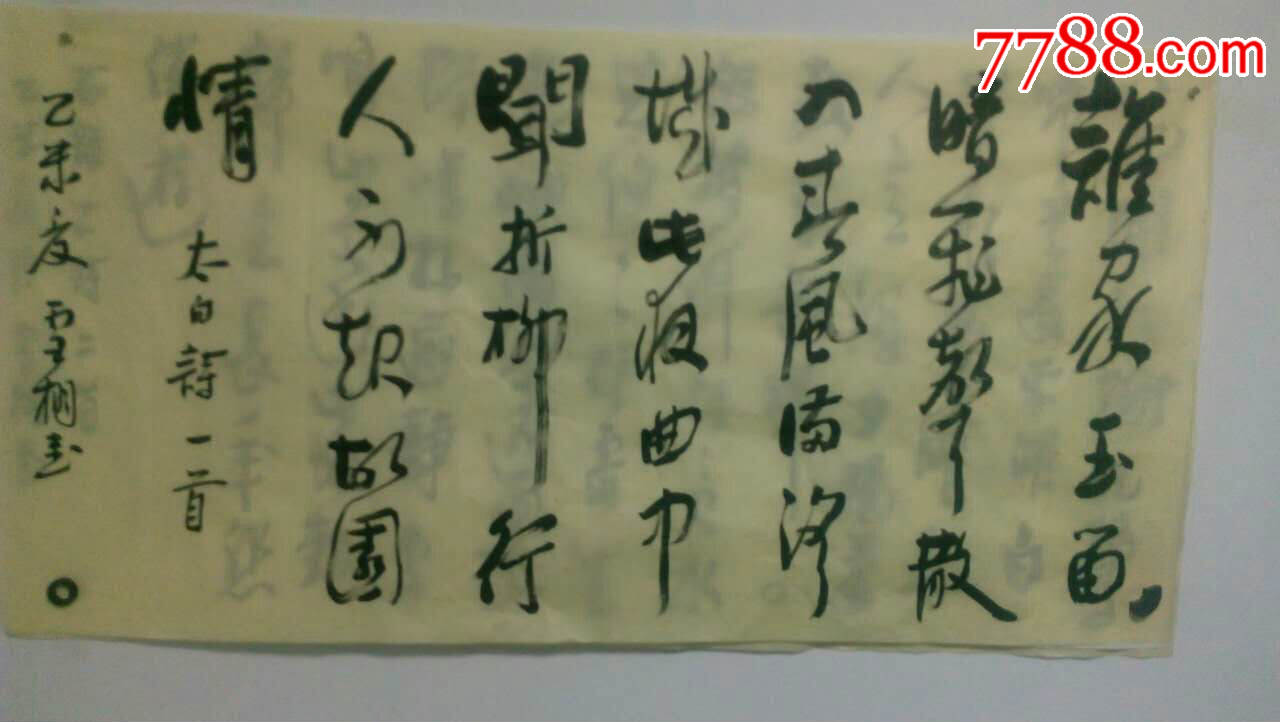 7788.com
誰家玉笛
暗飛聲散
入春風滿洛
城此夜曲中
聞折柳何
人不起故園
情
太白詩一首
乙未夏